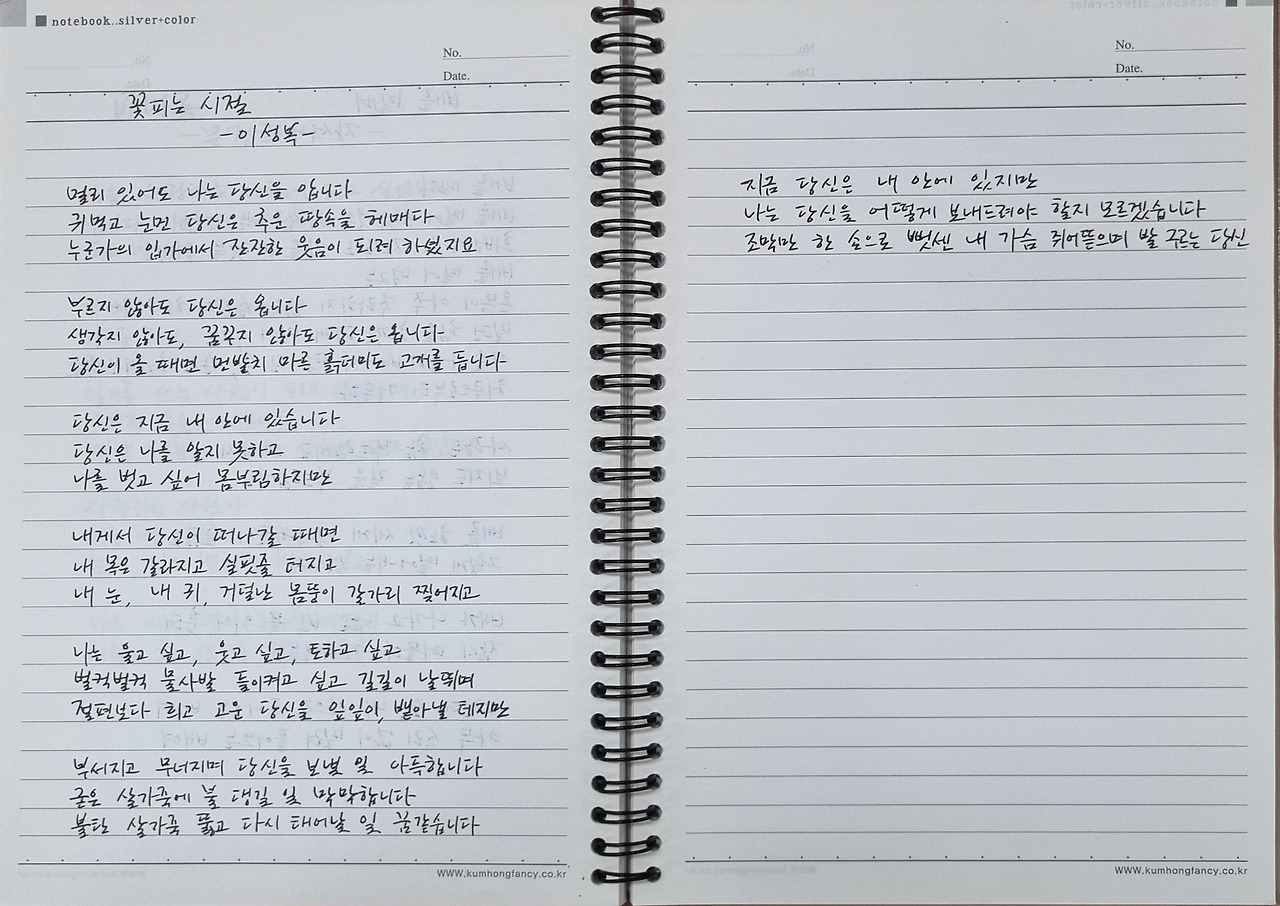 notebook..silver+color
No.
Date.
꽃피는 시절
-이성복-
멀리 있어도 나는 당신을 압니다
귀먹고 눈먼 당신은 추운 땅속을 헤매다
누군가의 입가에서 잔잔한 웃음이 되려 하셨지요
부르지 않아도 당신은 옵니다
생각지 않아도, 꿈꾸지 않아도 당신은 옵니다
당신이 올 때면 먼발치 마른 흙더미도 고개를 듭니다
당신은 지금 내 안에 있습니다
당신은 나를 알지 못하고
나를 벗고 싶어 몸부림하지만
내게서 당신이 떠나갈 때면
내 목은 갈라지고 실핏줄 터지고
내 눈, 내 귀, 거덜난 몸뚱이 갈가리 찢어지고
나는 울고 싶고, 웃고 싶고, 토하고 싶고
벌컥벌컥 물사발 들이켜고 싶고 길길이 날뛰며
절편보다 희고 고운 당신을 잎잎이, 뱉아낼 테지만
부서지고 무너지며 당신을 보낼 일 아득합니다
굳은 살가죽에 불 댕길 일 막막합니다
불탄 살가죽 뚫고 다시 태어날 일 꿈같습니다
WWW.kumhongfancy.co.kr
No.
Date.
지금 당신은 내 안에 있지만
나는 당신을 어떻게 보내드려야 할지 모르겠습니다
조막만 한 손으로 뻣센 내 가슴 쥐어뜯으며 발 구르는 당신
WWW.kumhongfancy.co.kr